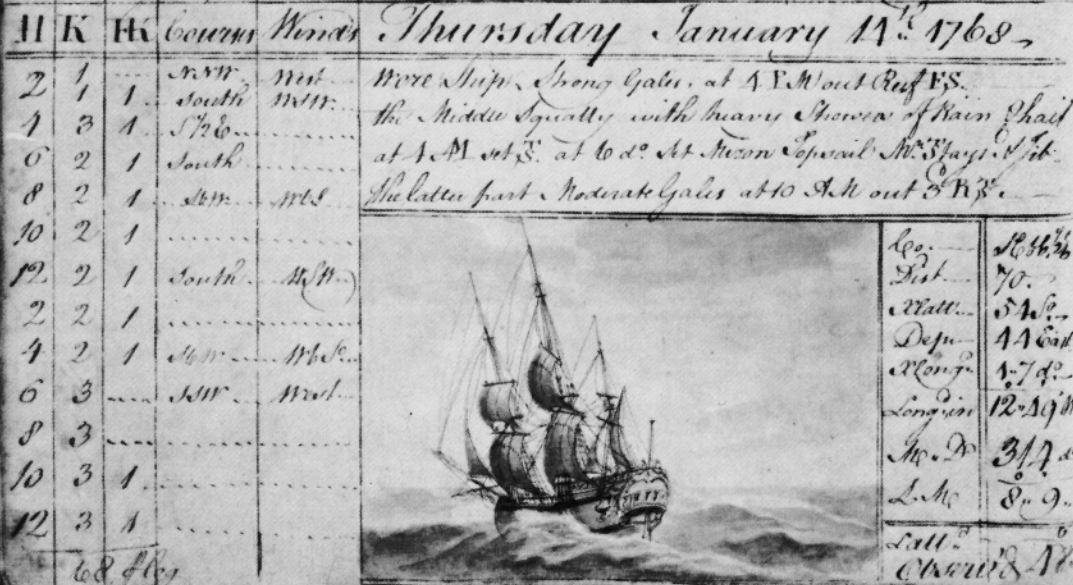 H K HK Courses Winds Thursday January 14th 1768
2 1 .... NNW West
1 1 South WSW
4 3 1 SbE
6 2 1 South
8 2 1 SbW WbS
10 2 1
12 2 1 South WSW
2 2 1
4 2 1 SbW WbSo
6 3 .... SSW West
8 3 ....
10 3 1
12 3 1
68 Log
Wore Ship Strong Gales. at 4 PM out Reef F.S.
the Middle Squally with heavy Showers of Rain & hail
at 4 AM set at 6 do Set Mizon Topsail Mn Stays. & Jib
the latter part Moderate Gales at 10 AM out 3 Rfs.
Co.
Dist 70.
Xlatt 54 So
Dep 44 East
XLong 1..7 do
Long in 12..49 W
M..D 314 d
L.M 8..9
Latt
Observ'd 48